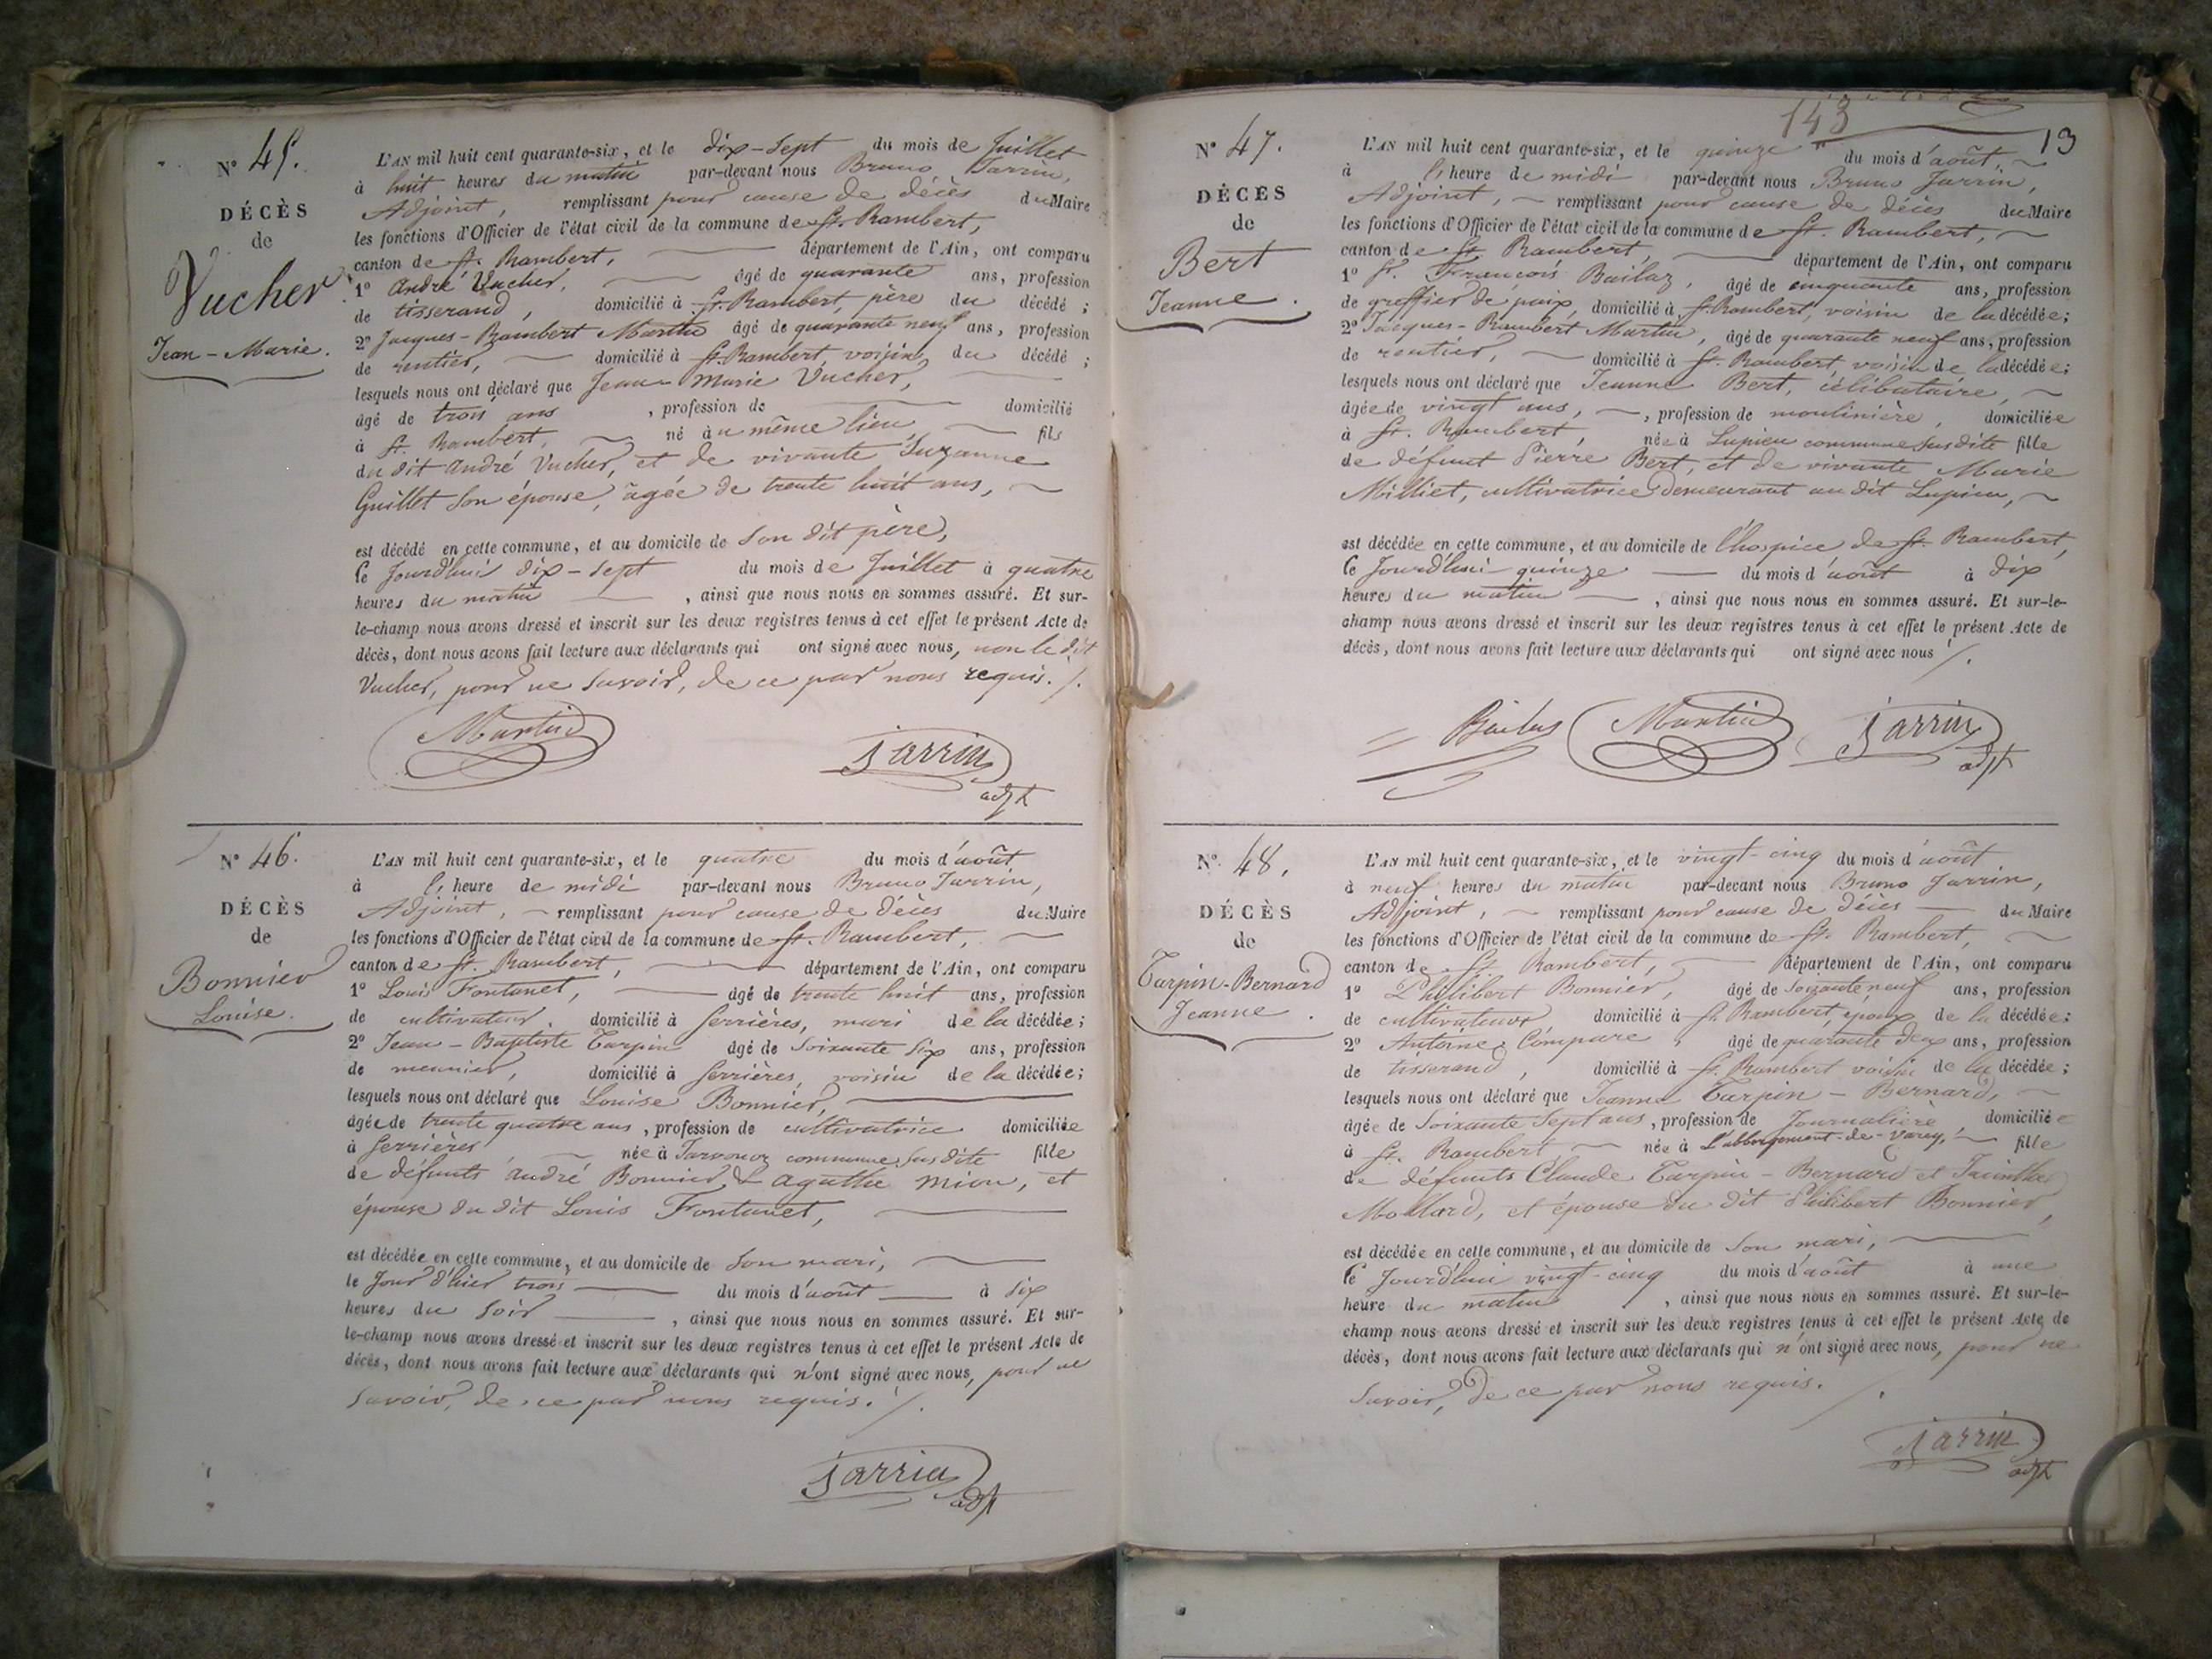 N° 45.
DÉCÈS
de
Vucher
Jean-Marie.
L'AN mil huit cent quarante-six, et le dix-sept du mois de Juillet
à huit heures du matin par-devant nous Bruno Jarrin,
Adjoint, remplissant pour cause de décès du Maire
les fonctions d'Officier de l'état civil de la commune de St. Rambert,
canton de St. Rambert, département de l'Ain, ont comparu
1° André Vucher, âgé de quarante ans, profession
de tisserand, domicilié à St. Rambert, père du décédé;
2° Jacques-Rambert Martin âgé de quarante neuf ans, profession
de rentier, domicilié à St. Rambert, voisin du décédé;
lesquels nous ont déclaré que Jean-Marie Vucher,
âgé de trois ans, profession de domicilié
à St. Rambert, né au même lieu, fils
du dit André Vucher, et de vivante Suzanne
Guillet son épouse, âgée de trente huit ans,
est décédé en cette commune, et au domicile de son dit père,
le Jourd'hui dix-sept du mois de Juillet à quatre
heures du matin, ainsi que nous nous en sommes assuré. Et sur-
le-champ nous avons dressé et inscrit sur les deux registres tenus à cet effet le présent Acte de
décès, dont nous avons fait lecture aux déclarants qui ont signé avec nous, non le dit
Vucher, pour ne savoir, de ce par nous requis. /.
Martin
Jarrin
adjt
N° 46.
DÉCÈS
de
Bonnier
Louise.
L'AN mil huit cent quarante-six, et le quatre du mois d'août
à l', heure de midi par-devant nous Bruno Jarrin,
Adjoint, remplissant pour cause de décès du Maire
les fonctions d'Officier de l'état civil de la commune de St. Rambert,
canton de St. Rambert, département de l'Ain, ont comparu
1° Louis Fontanet, âgé de trente huit ans, profession
de cultivateur domicilié à Serrières, mari de la décédée;
2° Jean-Baptiste Turpin âgé de soixante six ans, profession
de meunier, domicilié à Serrières, voisin de la décédée;
lesquels nous ont déclaré que Louise Bonnier,
âgée de trente quatre ans, profession de cultivatrice domiciliée
à Serrières née à commune susdite fille
de défunts André Bonnier, & Agathe Mion, et
épouse du dit Louis Fontanet,
est décédée en cette commune, et au domicile de son mari,
le Jour d'hier trois du mois d'août à six
heures du soir, ainsi que nous nous en sommes assuré. Et sur-
le-champ nous avons dressé et inscrit sur les deux registres tenus à cet effet le présent Acte de
décès, dont nous avons fait lecture aux déclarants qui n'ont signé avec nous, pour ne
savoir, de ce par nous requis. /.
Jarrin
adjt
143
13
N° 47.
DÉCÈS
de
Bert
Jeanne.
L'AN mil huit cent quarante-six, et le quinze du mois d'août,
à l', heure de midi par-devant nous Bruno Jarrin,
Adjoint, remplissant pour cause de décès du Maire
les fonctions d'Officier de l'état civil de la commune de St. Rambert,
canton de St. Rambert, département de l'Ain, ont comparu
1° Sr. François Bailaz, âgé de cinquante ans, profession
de greffier de paix, domicilié à St. Rambert, voisin de la décédée;
2° Jacques-Rambert Martin, âgé de quarante neuf ans, profession
de rentier, domicilié à St. Rambert, voisin de la décédée;
lesquels nous ont déclaré que Jeanne Bert, célibataire,
âgée de vingt ans, profession de moulinière, domiciliée
à St. Rambert, née à Lupieu commune susdite fille
de défunt Pierre Bert, et de vivante Marie
Milliet, cultivatrice demeurant au dit Lupieu,
est décédée en cette commune, et au domicile de l'hospice de St. Rambert,
le Jourd'hui quinze du mois d'août à dix
heures du matin, ainsi que nous nous en sommes assuré. Et sur-le-
champ nous avons dressé et inscrit sur les deux registres tenus à cet effet le présent Acte de
décès, dont nous avons fait lecture aux déclarants qui ont signé avec nous /.
Martin
Jarrin
adjt
N° 48.
DÉCÈS
de
Turpin-Bernard
Jeanne.
L'AN mil huit cent quarante-six, et le vingt-cinq du mois d'août
à neuf heures du matin par-devant nous Bruno Jarrin,
Adjoint, remplissant pour cause de décès du Maire
les fonctions d'Officier de l'état civil de la commune de St. Rambert,
canton de St. Rambert, département de l'Ain, ont comparu
1° Philibert Bonnier, âgé de soixante neuf ans, profession
de cultivateur domicilié à St. Rambert, époux de la décédée;
2° Antoine Compare, âgé de quarante deux ans, profession
de tisserand, domicilié à St. Rambert voisin de la décédée;
lesquels nous ont déclaré que Jeanne Turpin-Bernard,
âgée de soixante sept ans, profession de Journalière, domiciliée
à St. Rambert, née à L'abbergement-de-Varey, fille
de défunts Claude Turpin-Bernard et
Mollard, et épouse du dit Philibert Bonnier,
est décédée en cette commune, et au domicile de son mari,
le Jourd'hui vingt-cinq du mois d'août à une
heure du matin, ainsi que nous nous en sommes assuré. Et sur-le-
champ nous avons dressé et inscrit sur les deux registres tenus à cet effet le présent Acte de
décès, dont nous avons fait lecture aux déclarants qui n'ont signé avec nous, pour ne
savoir, de ce par nous requis. /.
Jarrin
adjt